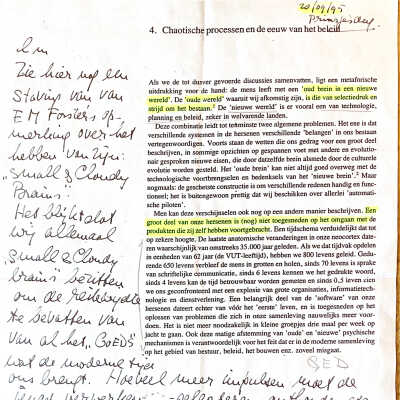 20/09/95
Prinsjesdag
4. Chaotische processen en de eeuw van het beleid
Als we de tot dusver gevoerde discussies samenvatten, ligt een metaforische
uitdrukking voor de hand: de mens leeft met een 'oud brein in een nieuwe
wereld'. De 'oude wereld' waaruit wij afkomstig zijn, is die van selectiedruk en
strijd om het bestaan.² De 'nieuwe wereld' is er vooral een van technologie,
planning en beleid, zeker in welvarende landen.
Deze combinatie leidt tot tenminste twee algemene problemen. Het ene is dat
verschillende systemen in de hersenen verschillende 'belangen' in ons bestaan
vertegenwoordigen. Voorts staan de wetten die ons gedrag voor een groot deel
beschrijven, in sommige opzichten op gespannen voet met andere en evolutio-
nair gesproken nieuwe eisen, die door datzelfde brein alsmede door de culturele
evolutie worden gesteld. Het 'oude brein' kan niet altijd goed overweg met de
technologische voortbrengselen en bedenksels van het 'nieuwe brein'.³ Maar
nogmaals: de geschetste constructie is om verschillende redenen handig en func-
tioneel; het is buitengewoon prettig dat wij beschikken over allerlei 'automati-
sche piloten'.
Men kan deze verschijnselen ook nog op een andere manier beschrijven. Een
groot deel van onze hersenen is (nog) niet toegesneden op het omgaan met de
produkten die zij zelf hebben voortgebracht. Een tijdschema verduidelijkt dat tot
op zekere hoogte. De laatste anatomische veranderingen in onze neocortex date-
ren waarschijnlijk van omstreeks 35.000 jaar geleden. Als we dat tijdvak opdelen
in eenheden van 62 jaar (de VUT-leeftijd), hebben we 800 levens geleid. Gedu-
rende 650 levens verbleef de mens in grotten en holen, sinds 70 levens is sprake
van schriftelijke communicatie, sinds 6 levens kennen we het gedrukte woord,
sinds 4 levens kan de tijd betrouwbaar worden gemeten en sinds 0,5 leven zien
we ons geconfronteerd met een explosie van grote organisaties, informatietech-
nologie en dienstverlening. Een belangrijk deel van de 'software' van onze
hersenen dateert echter van vóór het 'eerste' leven, en is toegesneden op het
oplossen van problemen die zich in onze samenleving nauwelijks meer voor-
doen. Het is niet meer noodzakelijk in kleine groepjes drie maal per week op
jacht te gaan. Ook deze matige afstemming van 'oude' en 'nieuwe' psychische
mechanismen is verantwoordelijk voor het feit dat er in de moderne samenleving
op het gebied van bestuur, beleid, het bouwen enz. zoveel misgaat.
Zie hier nog een
staving van van
EM Forster's op-
merking over het
hebben van zijn:
"small & Cloudy
Brains"
Het blijkt dat
wij allemaal
"small & Cloudy
brains" bezitten
om de reikwijdte
te bevatten van
van al het "GOEDS"
wat de moderne tijd
ons brengt. Hoeveel meer impulsen moet de